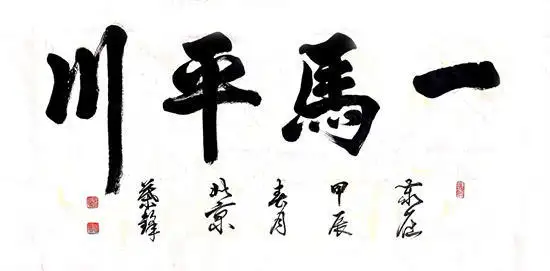 一馬平川
甲辰春月北京蔡鋒